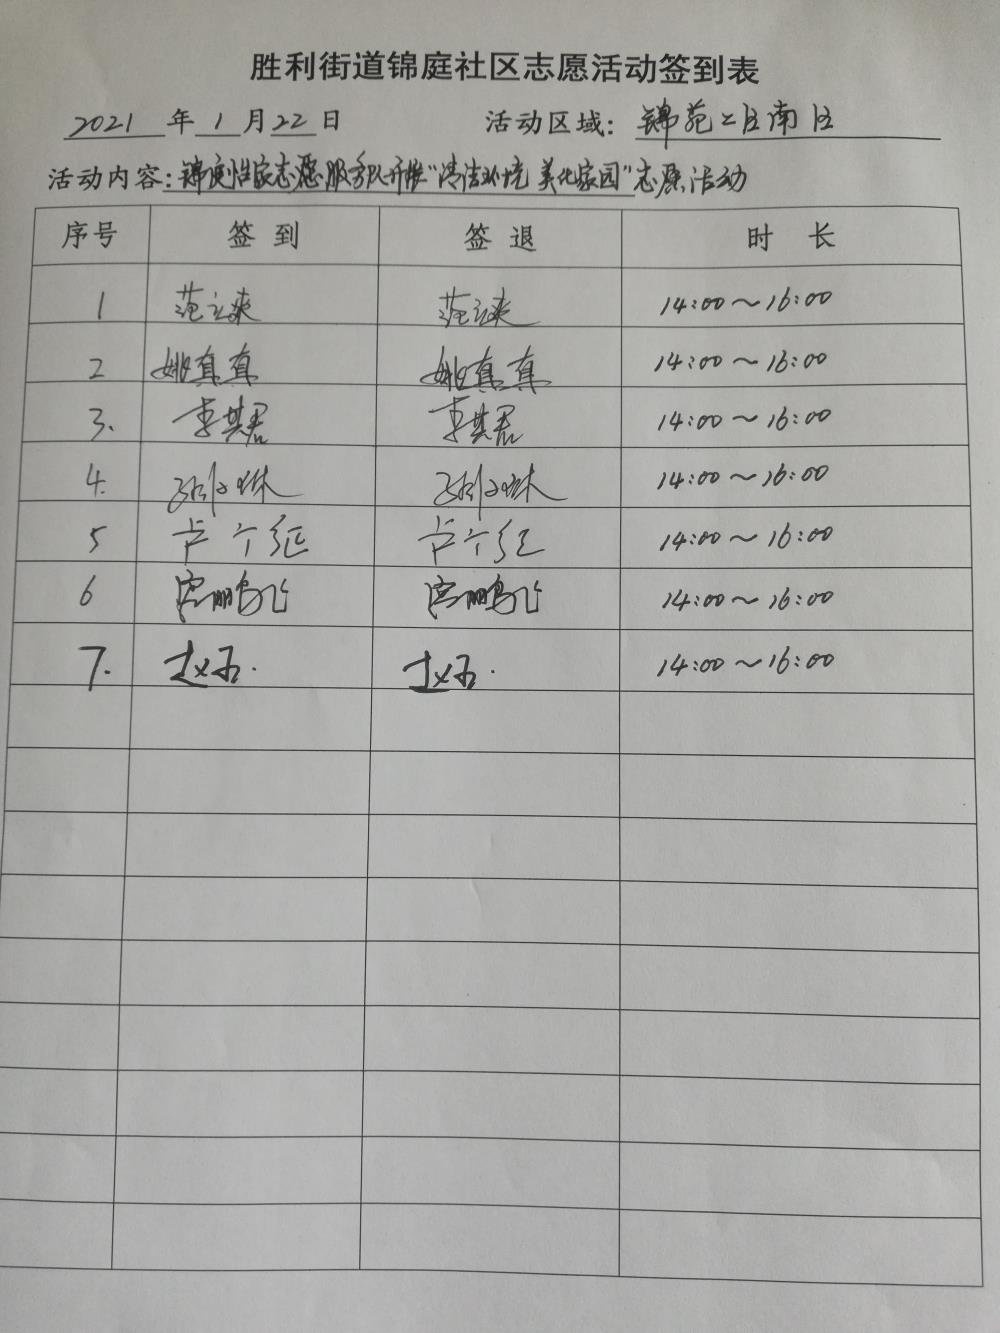 胜利街道锦庭社区志愿活动签到表
2021 年 1 月 22 日 活动区域: 锦苑二区南区
活动内容: 锦庭 家志愿服务队开展“清洁环境 美化家园”志愿活动
序号 签到 签退 时长
1 范立爽 范立爽 14:00～16:00
2 姚真真 姚真真 14:00～16:00
3. 李其君 李其君 14:00～16:00
4. 14:00～16:00
5 卢 红 卢 红 14:00～16:00
6 宫鹏飞 宫鹏飞 14:00～16:00
7. 赵 赵 14:00～16:00